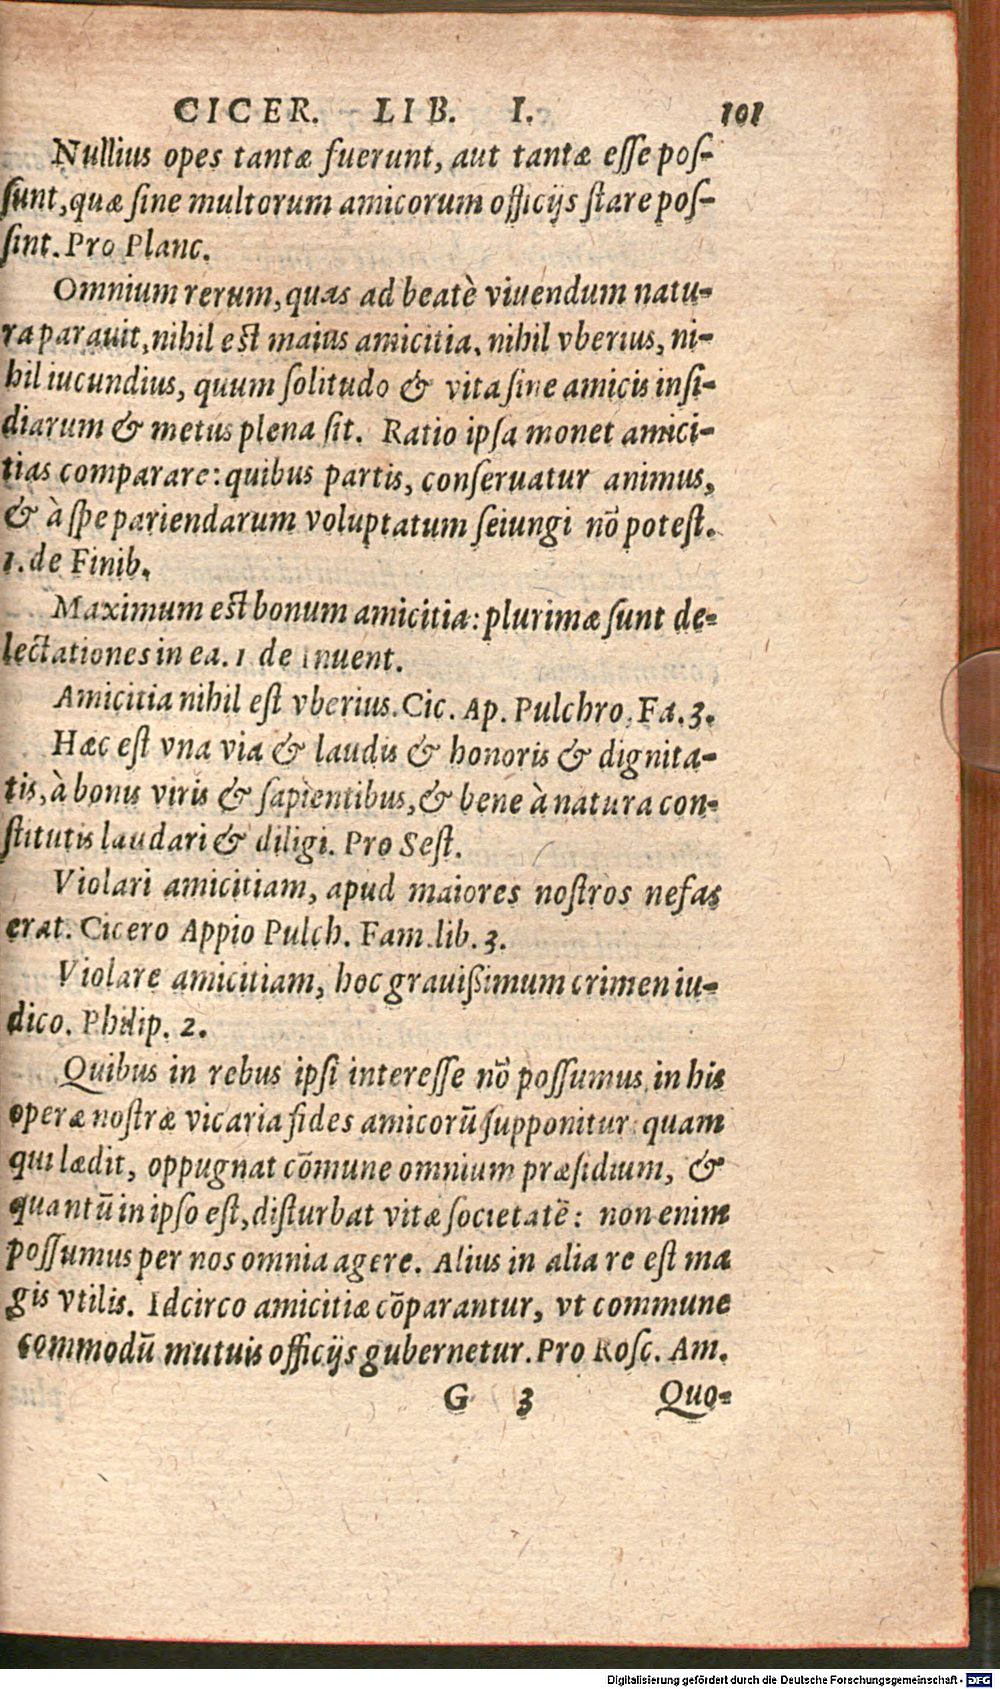 CICER. LIB. I. 101
Nullius opes tantæ fuerunt, aut tantæ esse pos-
sunt, quæ sine multorum amicorum officijs stare pos-
sint. Pro Planc.
Omnium rerum, quas ad beatè viuendum natu-
ra parauit, nihil est maius amicitia, nihil vberius, ni-
hil iucundius, quum solitudo & vita sine amicis insi-
diarum & metus plena sit. Ratio ipsa monet amici-
tias comparare: quibus partis, conseruatur animus,
& à spe pariendarum voluptatum seiungi nō potest.
1. de Finib.
Maximum est bonum amicitia: plurimæ sunt de-
lectationes in ea. 1 de Inuent.
Amicitia nihil est vberius. Cic. Ap. Pulchro, Fa. 3.
Hæc est vna via & laudis & honoris & dignita-
tis, à bonis viris & sapientibus, & bene à natura con-
stitutis laudari & diligi. Pro Sest.
Violari amicitiam, apud maiores nostros nefas
erat. Cicero Appio Pulch. Fam. lib. 3.
Violare amicitiam, hoc grauissimum crimen iu-
dico. Philip. 2.
Quibus in rebus ipsi interesse nō possumus, in his
operæ nostræ vicaria fides amicorū supponitur: quam
qui lædit, oppugnat cōmune omnium præsidium, &
quantū in ipso est, disturbat vitæ societatē: non enim
possumus per nos omnia agere. Alius in alia re est ma
gis vtilis. Idcirco amicitiæ cōparantur, vt commune
commodū mutuis officijs gubernetur. Pro Rosc. Am.
G 3 Quo-
Digitalisierung gefördert durch die Deutsche Forschungsgemeinschaft - DFG